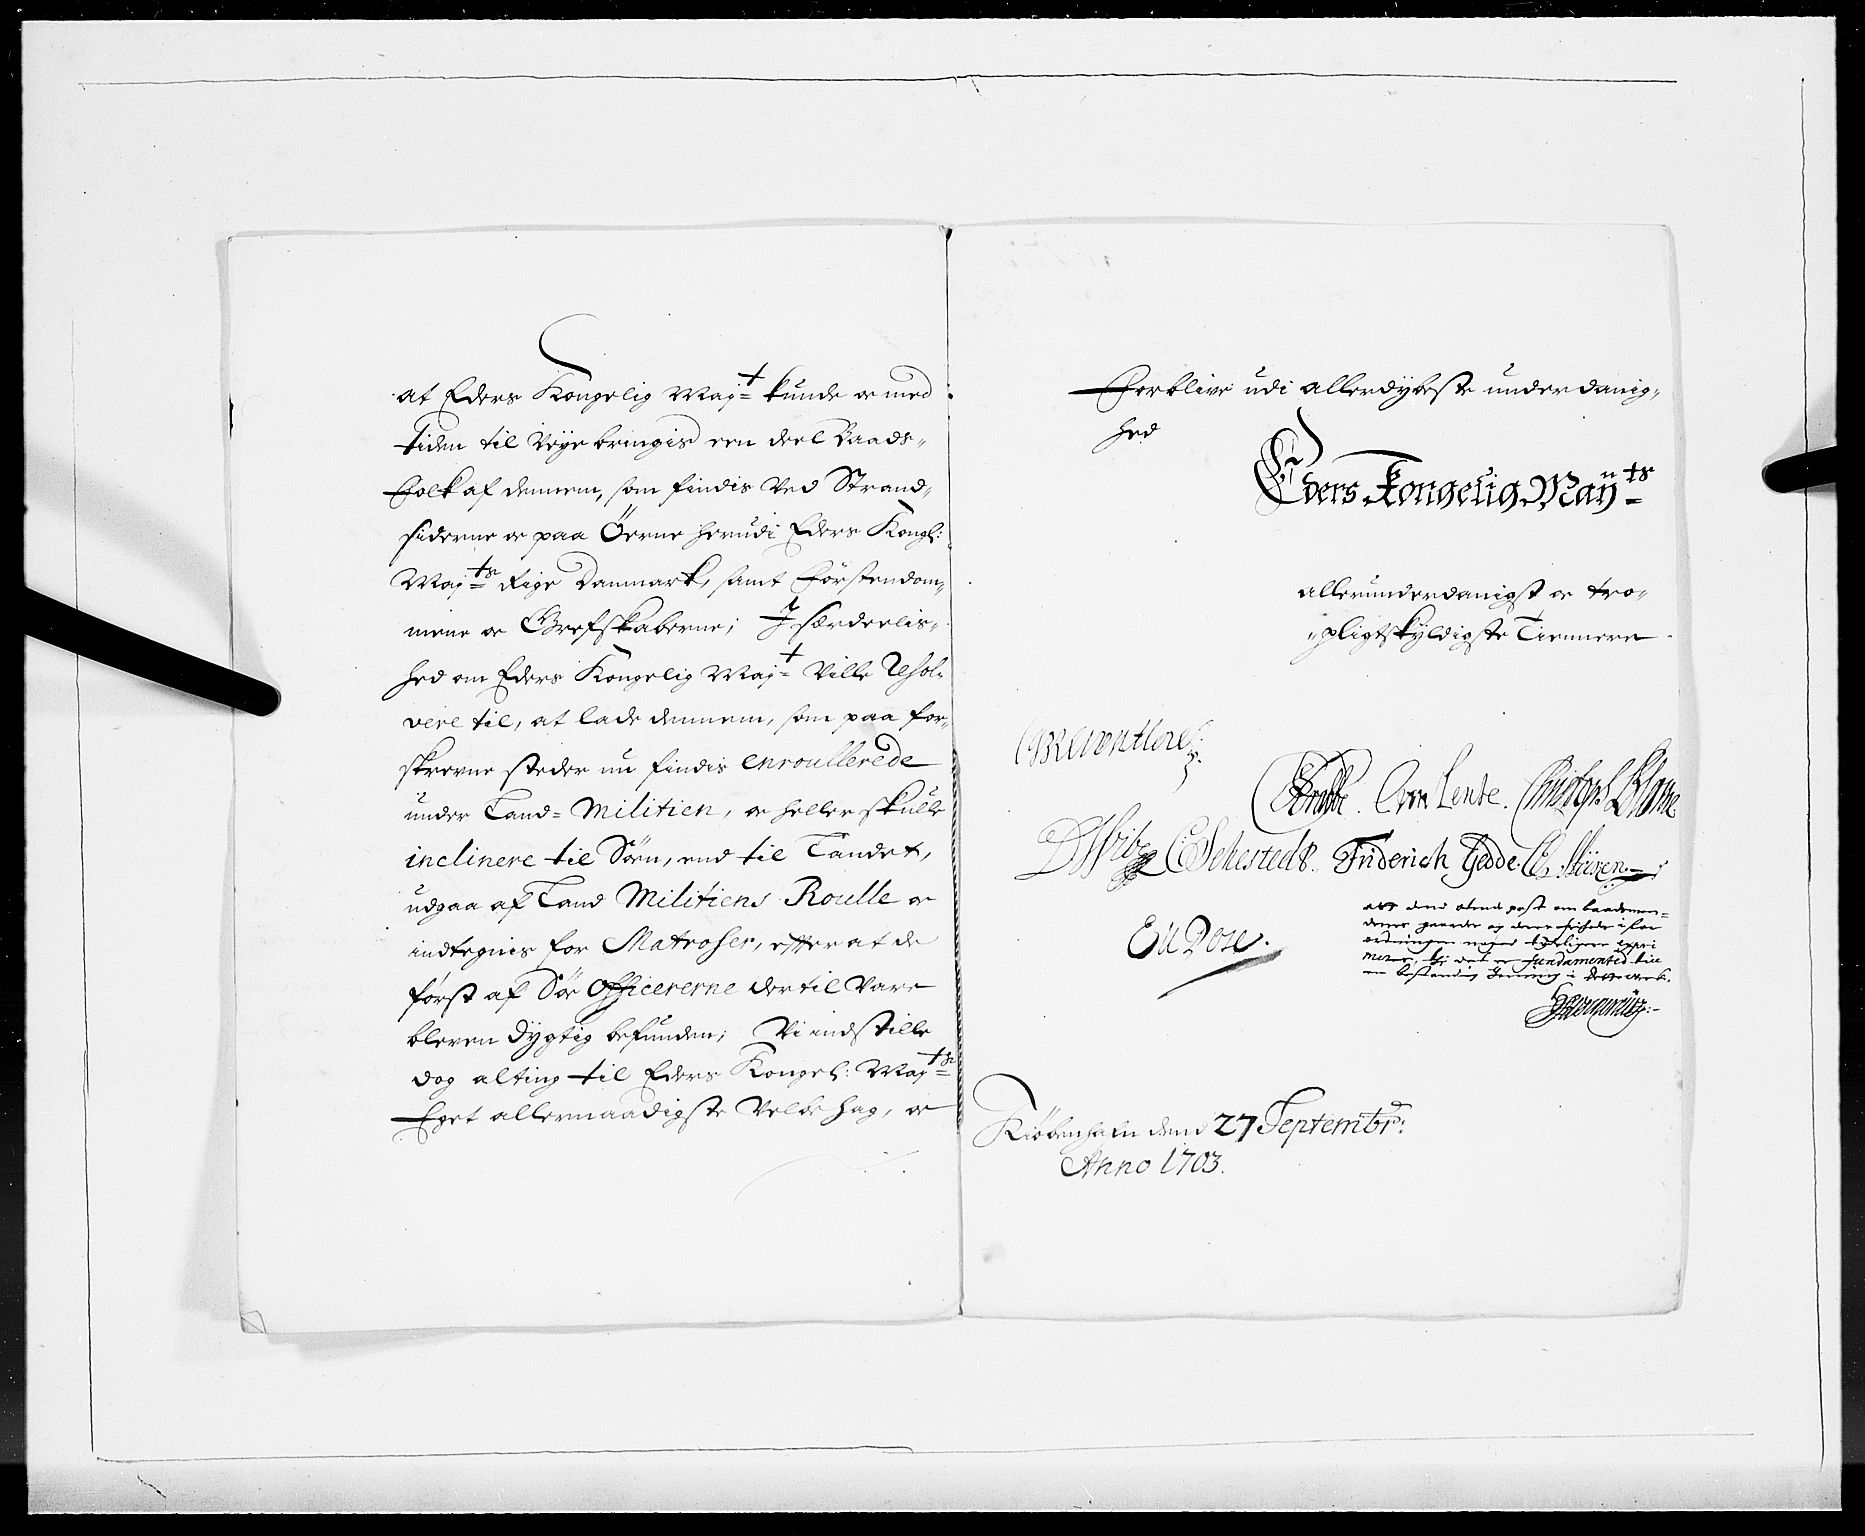 at Eders Kongelig Maj:t kunde oc med
tiden til Veye bringis een deel Baads-
Folk af dennem, som findis Ved Strand-
siderne oc paa Öerne herudi Eders Kongl:
Maj:ts Rige Danmark, samt Förstendom-
mene oc Grefskaberne; J særdeelis-
hed om Eders Kongelig Maj:t Ville Resol-
vere til, at lade dennem, som paa for-
skrevne steder nu findis enroullerede
under Land-Militien, oc heller skulle
inclinere til Söen, end til Landet,
udgaa af Land Militiens Roulle oc
indtegnis for Matroser, efter at de
först af Söe Officererne dertil Vare
bleven dygtig befunden; Vi indstille
dog alting til Eders Kongel: Maj:ts
Eget allernaadigste Velbehag, oc
Forblive udi allerdybeste underdanig-
hed
Eders Kongelig Maÿ:ts
allerunderdanigst oc tro-
-pligtskyldigste Tiennere
CReventlow
Krabbe. von Lente.
DWibe CSehested. Friderich Gedde.
dend post om baadsmen-
fundamentet til
Kiöbenhafn dend 27 Septembr:
Anno 1703.